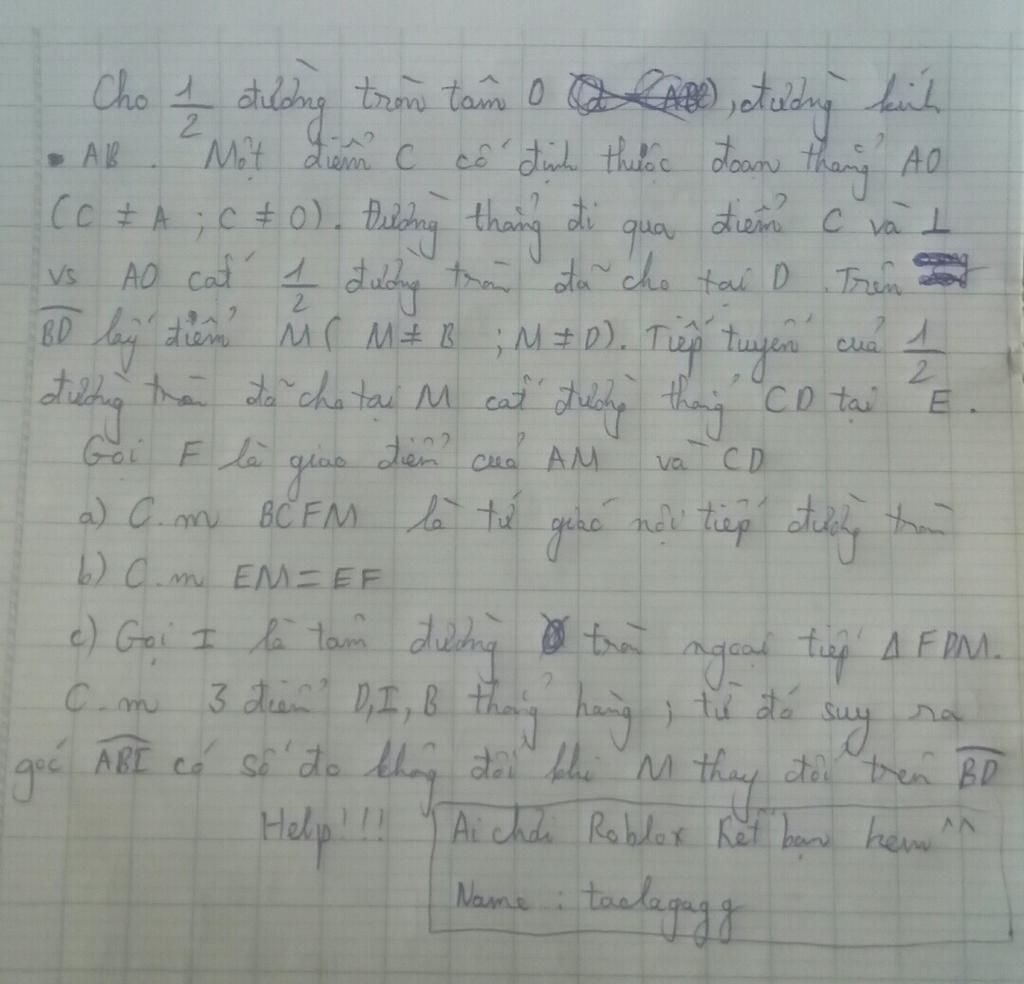 Cho 1/2 đường tròn tâm O, đường kính
AB. Một điểm C cố định thuộc đoạn thẳng AO
(C ≠ A ; C ≠ O). Đường thẳng đi qua điểm C và ⊥
vs AO cắt 1/2 đường tròn đã cho tại D. Trên
BD lấy điểm M ( M ≠ B ; M ≠ D). Tiếp tuyến của 1/2
đường tròn đã cho tại M cắt đường thẳng CD tại E.
Gọi F là giao điểm của AM và CD
a) C.m BCFM là tứ giác nội tiếp đường tròn
b) C.m EM = EF
c) Gọi I là tâm đường tròn ngoại tiếp Δ FDM.
C.m 3 điểm D, I, B thẳng hàng ; từ đó suy ra
góc ABI có số đo không đổi khi M thay đổi trên BD
Help!!! Ai chơi Roblox kết bạn hem ^^
Name : taelagagg